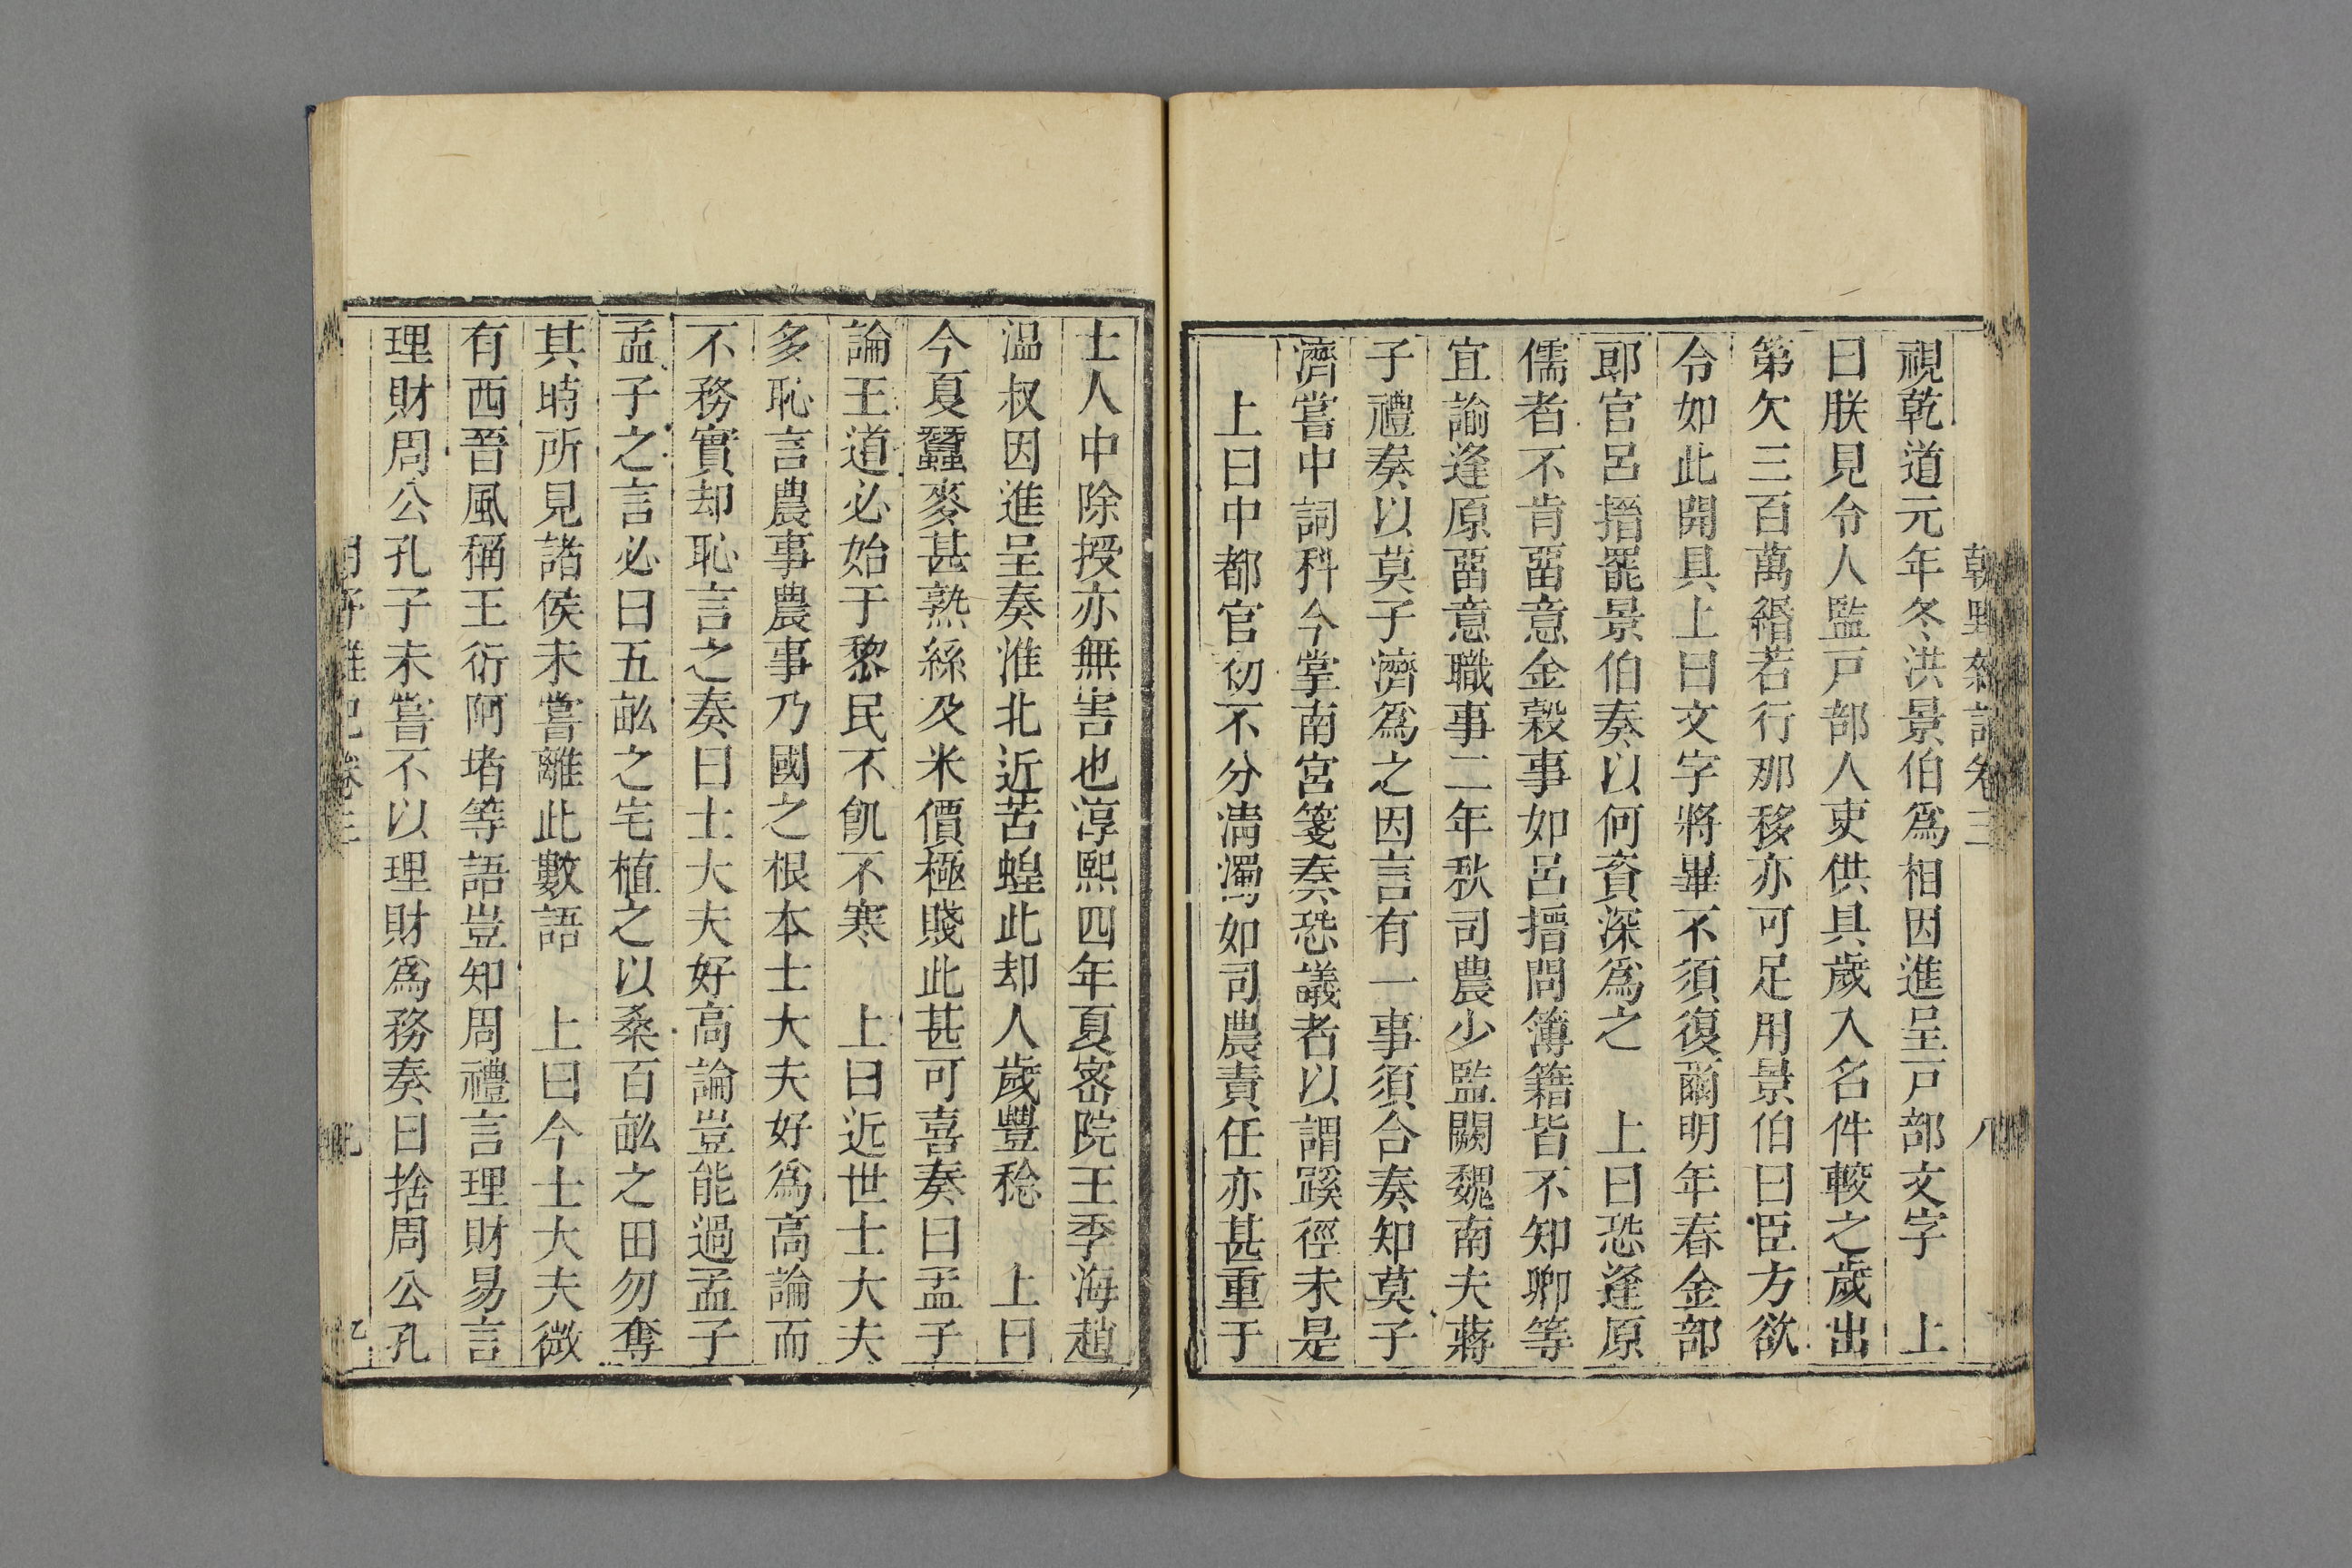 朝野雜記卷三 八
視乾道元年冬洪景伯爲相因進呈戸部文字 上
曰朕見令人監戸部人吏供具歲入名件較之歲出
第欠三百萬緡若行那移亦可足用景伯曰臣方欲
令如此開具上曰文字將畢不須復爾明年春金部
郎官呂搢罷景伯奏以何資深爲之 上曰恐逢原
儒者不肯畱意金穀事如呂搢問簿籍皆不知卿等
宜諭逢原畱意職事二年秋司農少監闕魏南夫蔣
子禮奏以莫子濟爲之因言有一事須合奏知莫子
濟嘗中詞科今掌南宮箋奏恐議者以謂蹊徑未是
上曰中都官初不分淸濁如司農責任亦甚重于
士人中除授亦無害也淳熙四年夏密院王季海趙
温叔因進呈奏淮北近苦蝗此却人歲豐稔 上曰
今夏蠶麥甚熟絲及米價極賤此甚可喜奏曰孟子
論王道必始于黎民不飢不寒 上曰近世士大夫
多恥言農事農事乃國之根本士大夫好爲高論而
不務實却恥言之奏曰士大夫好高論豈能過孟子
孟子之言必曰五畝之宅植之以桑百畝之田勿奪
其時所見諸侯未嘗離此數語 上曰今士大夫微
有西晉風稱王衍阿堵等語豈知周禮言理財易言
理財周公孔子未嘗不以理財爲務奏曰捨周公孔